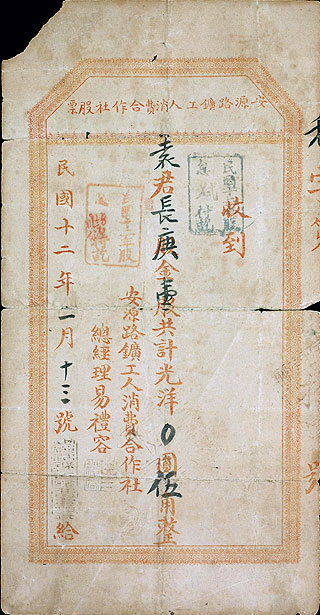 安源路鑛工人消費合作社股票
收到
袁君長庚股金壹股共計光洋0圓伍角整
安源路鑛工人消費合作社
總經理易禮容
民國十二年二月十三號給